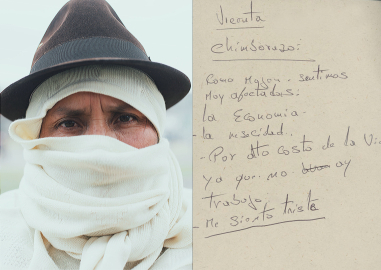 Vicenta
Chimborazo:
Como Mujer. sentimos
Muy afectadas:
la Economia.
- la nesecidad.
- Por Alto costo de la Vi
ya que. no ay
trabajo
- Me siento triste